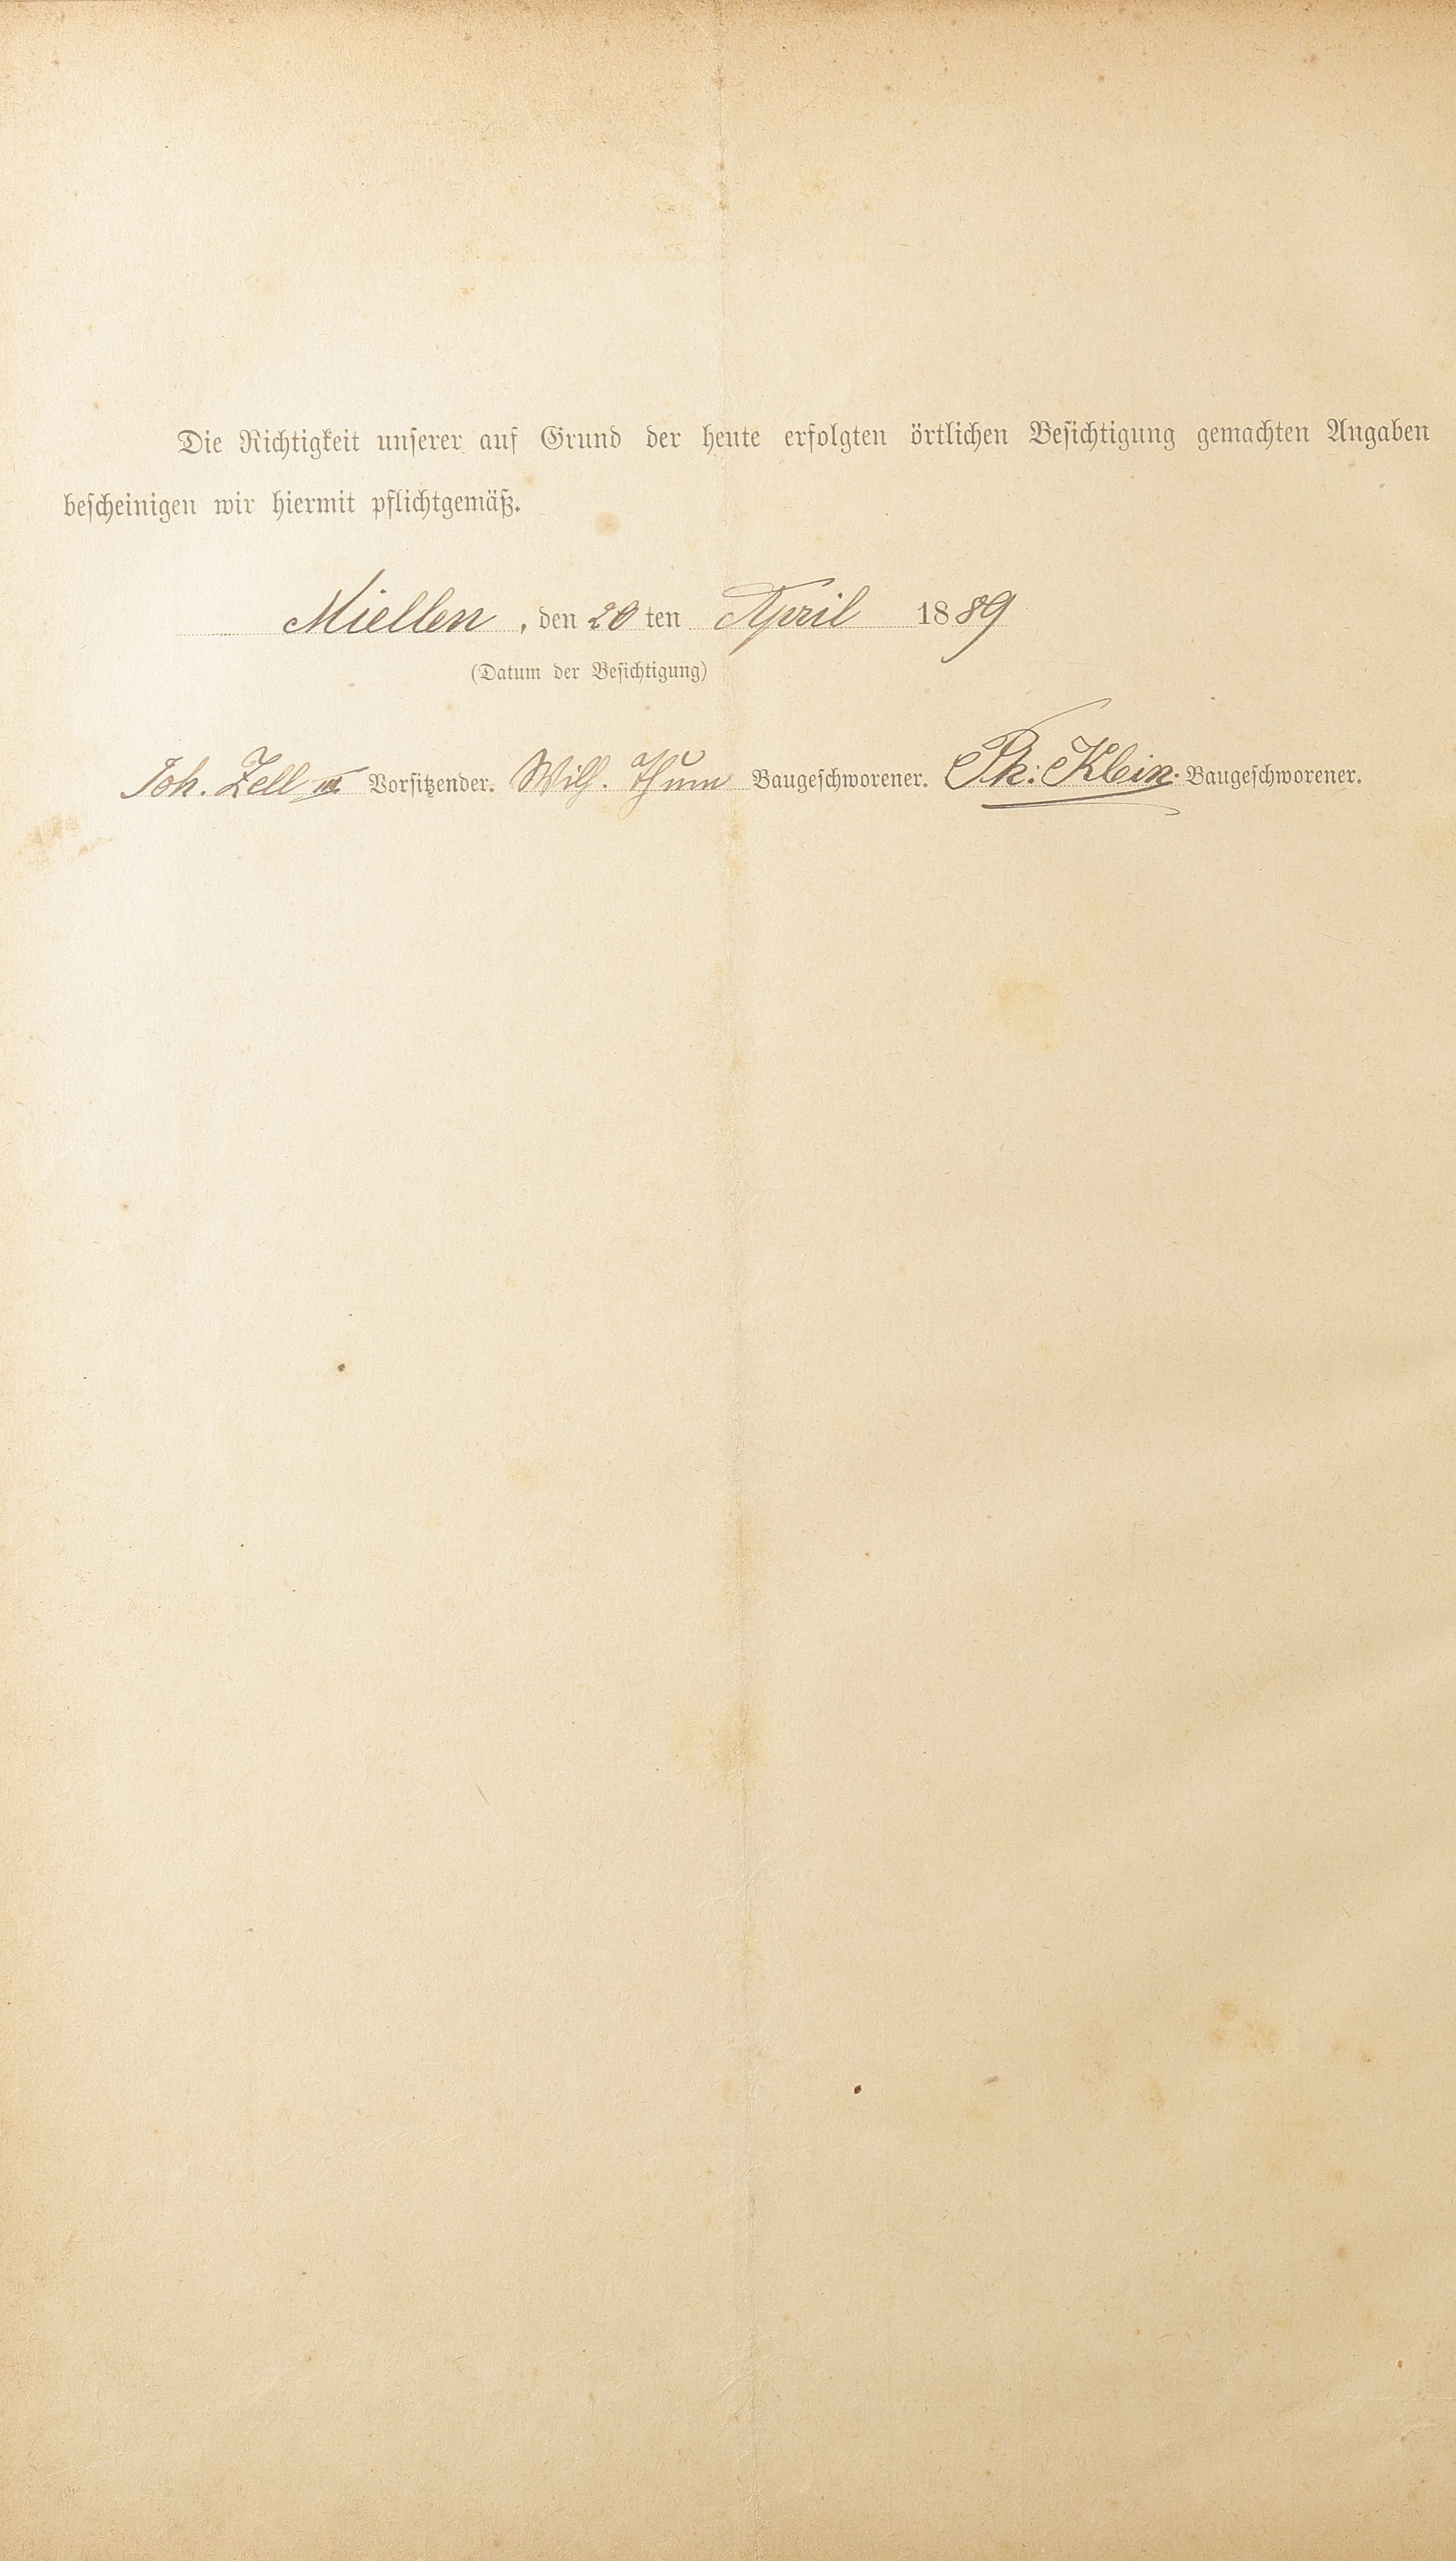 Die Richtigkeit unserer auf Grund der heute erfolgten örtlichen Besichtigung gemachten Angaben
bescheinigen wir hiermit pflichtgemäß.
Miellen, den 20ten April 1889
(Datum der Besichtigung)
Joh. Zell III Vorsitzender. Wilh. Thum Baugeschworener. Ph: Klein. Baugeschworener.